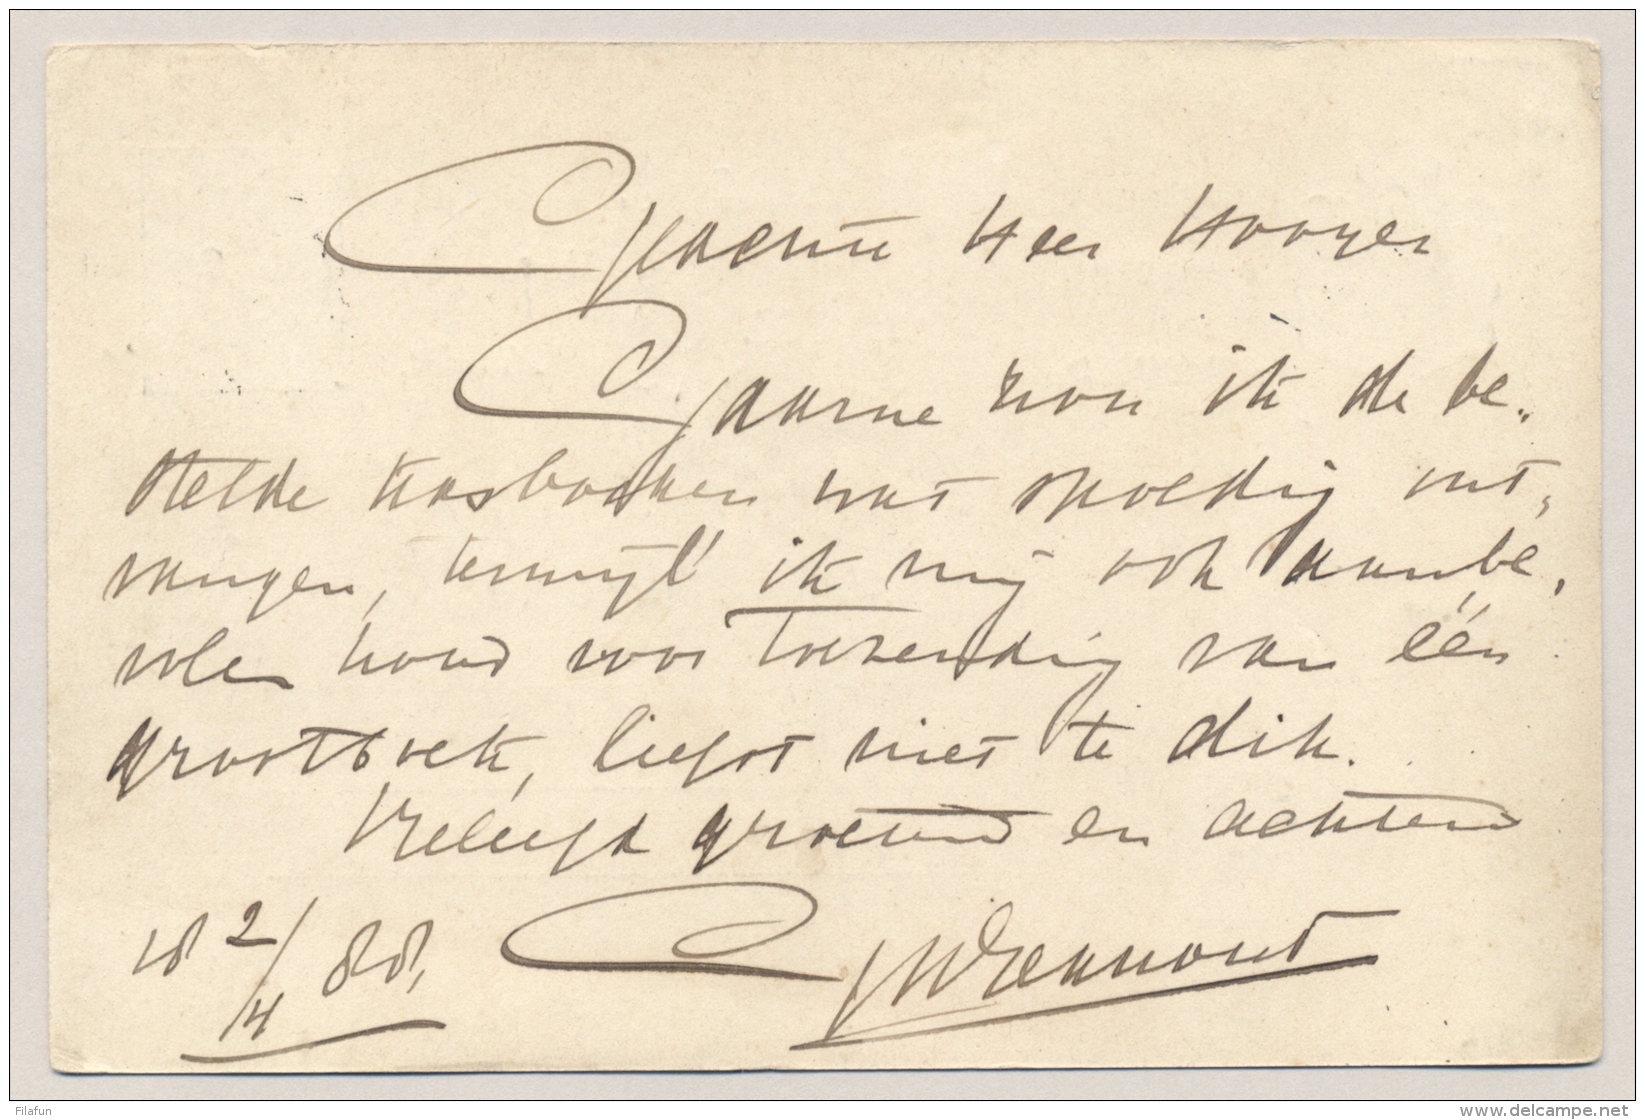 Geachte Heer Hooyer
Gaarne zou ik de be„
stelde kasboeken wat spoedig ont„
vangen, terwijl ik mij ook aanbe„
volen houd voor toezending van één
grootboek, liefst niet te dik.
Beleefd groetend en achtend
18 2/4 88.
Filafun
www.delcampe.net